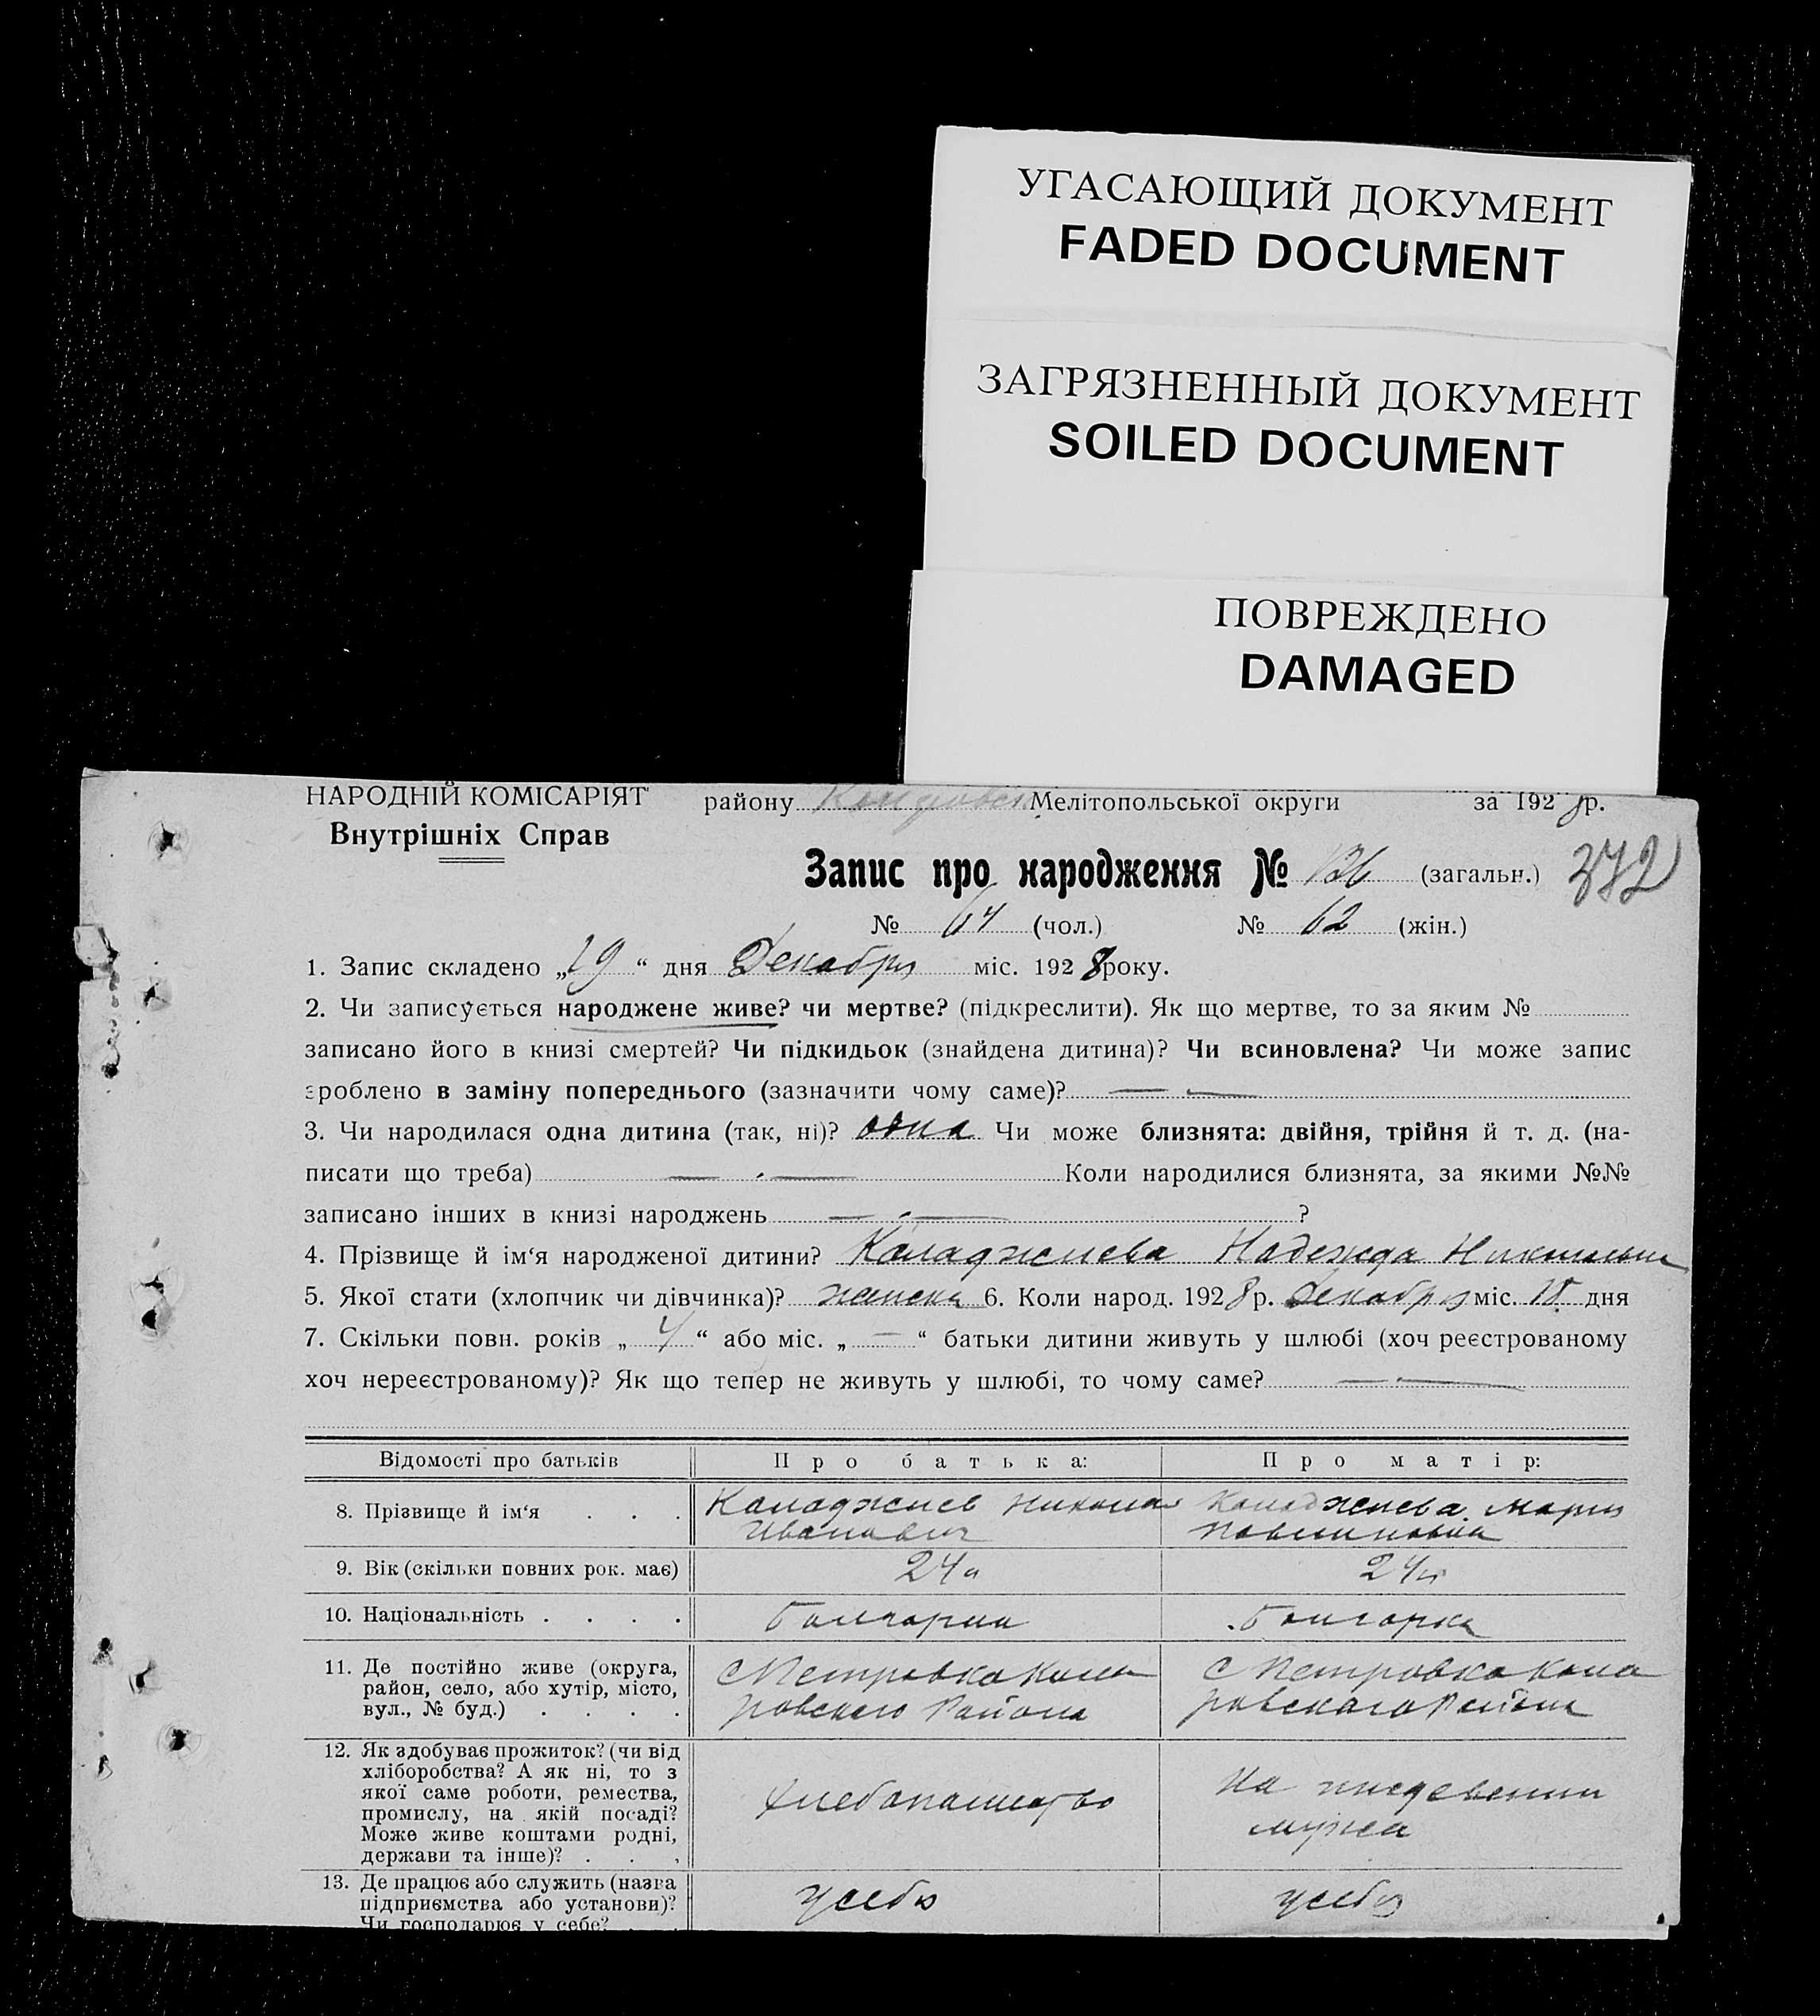 УГАСАЮЩИЙ ДОКУМЕНТ
FADED DOCUMENT
ЗАГРЯЗНЕННЫЙ ДОКУМЕНТ
SOILED DOCUMENT
ПОВРЕЖДЕНО
DAMAGED
НАРОДНІЙ КОМІСАРІЯТ району Мелітопольської округи за 1928 р.
Внутрішніх Справ
Запис про народження № 126 (загальн.) 372
№ 64 (чол.) № 62 (жін.)
1. Запис складено „19“ дня Декабря міс. 1928 року.
2. Чи записується народжене живе? чи мертве? (підкреслити). Як що мертве, то за яким №
записано його в книзі смертей? Чи підкидьок (знайдена дитина)? Чи всиновлена? Чи може запис
зроблено в заміну попереднього (зазначити чому саме)? — —
3. Чи народилася одна дитина (так, ні)? одна Чи може близнята: двійня, трійня й т. д. (на-
писати що треба) — — Коли народилися близнята, за якими №№
записано інших в книзі народжень — — ?
4. Прізвище й ім‘я народженої дитини? Каладжиева Надежда
5. Якої стати (хлопчик чи дівчинка)? женска 6. Коли народ. 1928 р. Декабря міс. дня
7. Скільки повн. років „4“ або міс. „—“ батьки дитини живуть у шлюбі (хоч реєстрованому
хоч нереєстрованому)? Як що тепер не живуть у шлюбі, то чому саме? — —
Відомості про батьків Про батька: Про матір:
8. Прізвище й ім‘я . . . Каладжиев Николай Каладжиева Мария
Иванович
9. Вік (скільки повних рок. має) 24 24
10. Національність . . . . Болгарин Болгарка
11. Де постійно живе (округа, с Петровка Кола с Петровка Кола
район, село, або хутір, місто, ровского Района ровского Района
вул., № буд.) . . . .
12. Як здобуває прожиток? (чи від
хліборобства? А як ні, то з
якої саме роботи, ремества, Хлебопашество На иждевении
промислу, на якій посаді? мужа
Може живе коштами родні,
держави та інше)? . . .
13. Де працює або служить (назва у себя у себя
підприємства або установи)?
Чи господарює у себе? . .